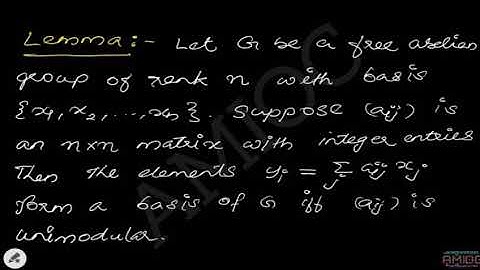 Lemma:- Let G be a free abelian
group of rank n with basis
{x₁, x₂, ..., xₙ}. Suppose (aᵢⱼ) is
an n×n matrix with integer entries
Then the elements yᵢ = ∑ⱼ aᵢⱼ xⱼ
form a basis of G iff (aᵢⱼ) is
unimodular.
AMIOC
AMIOC